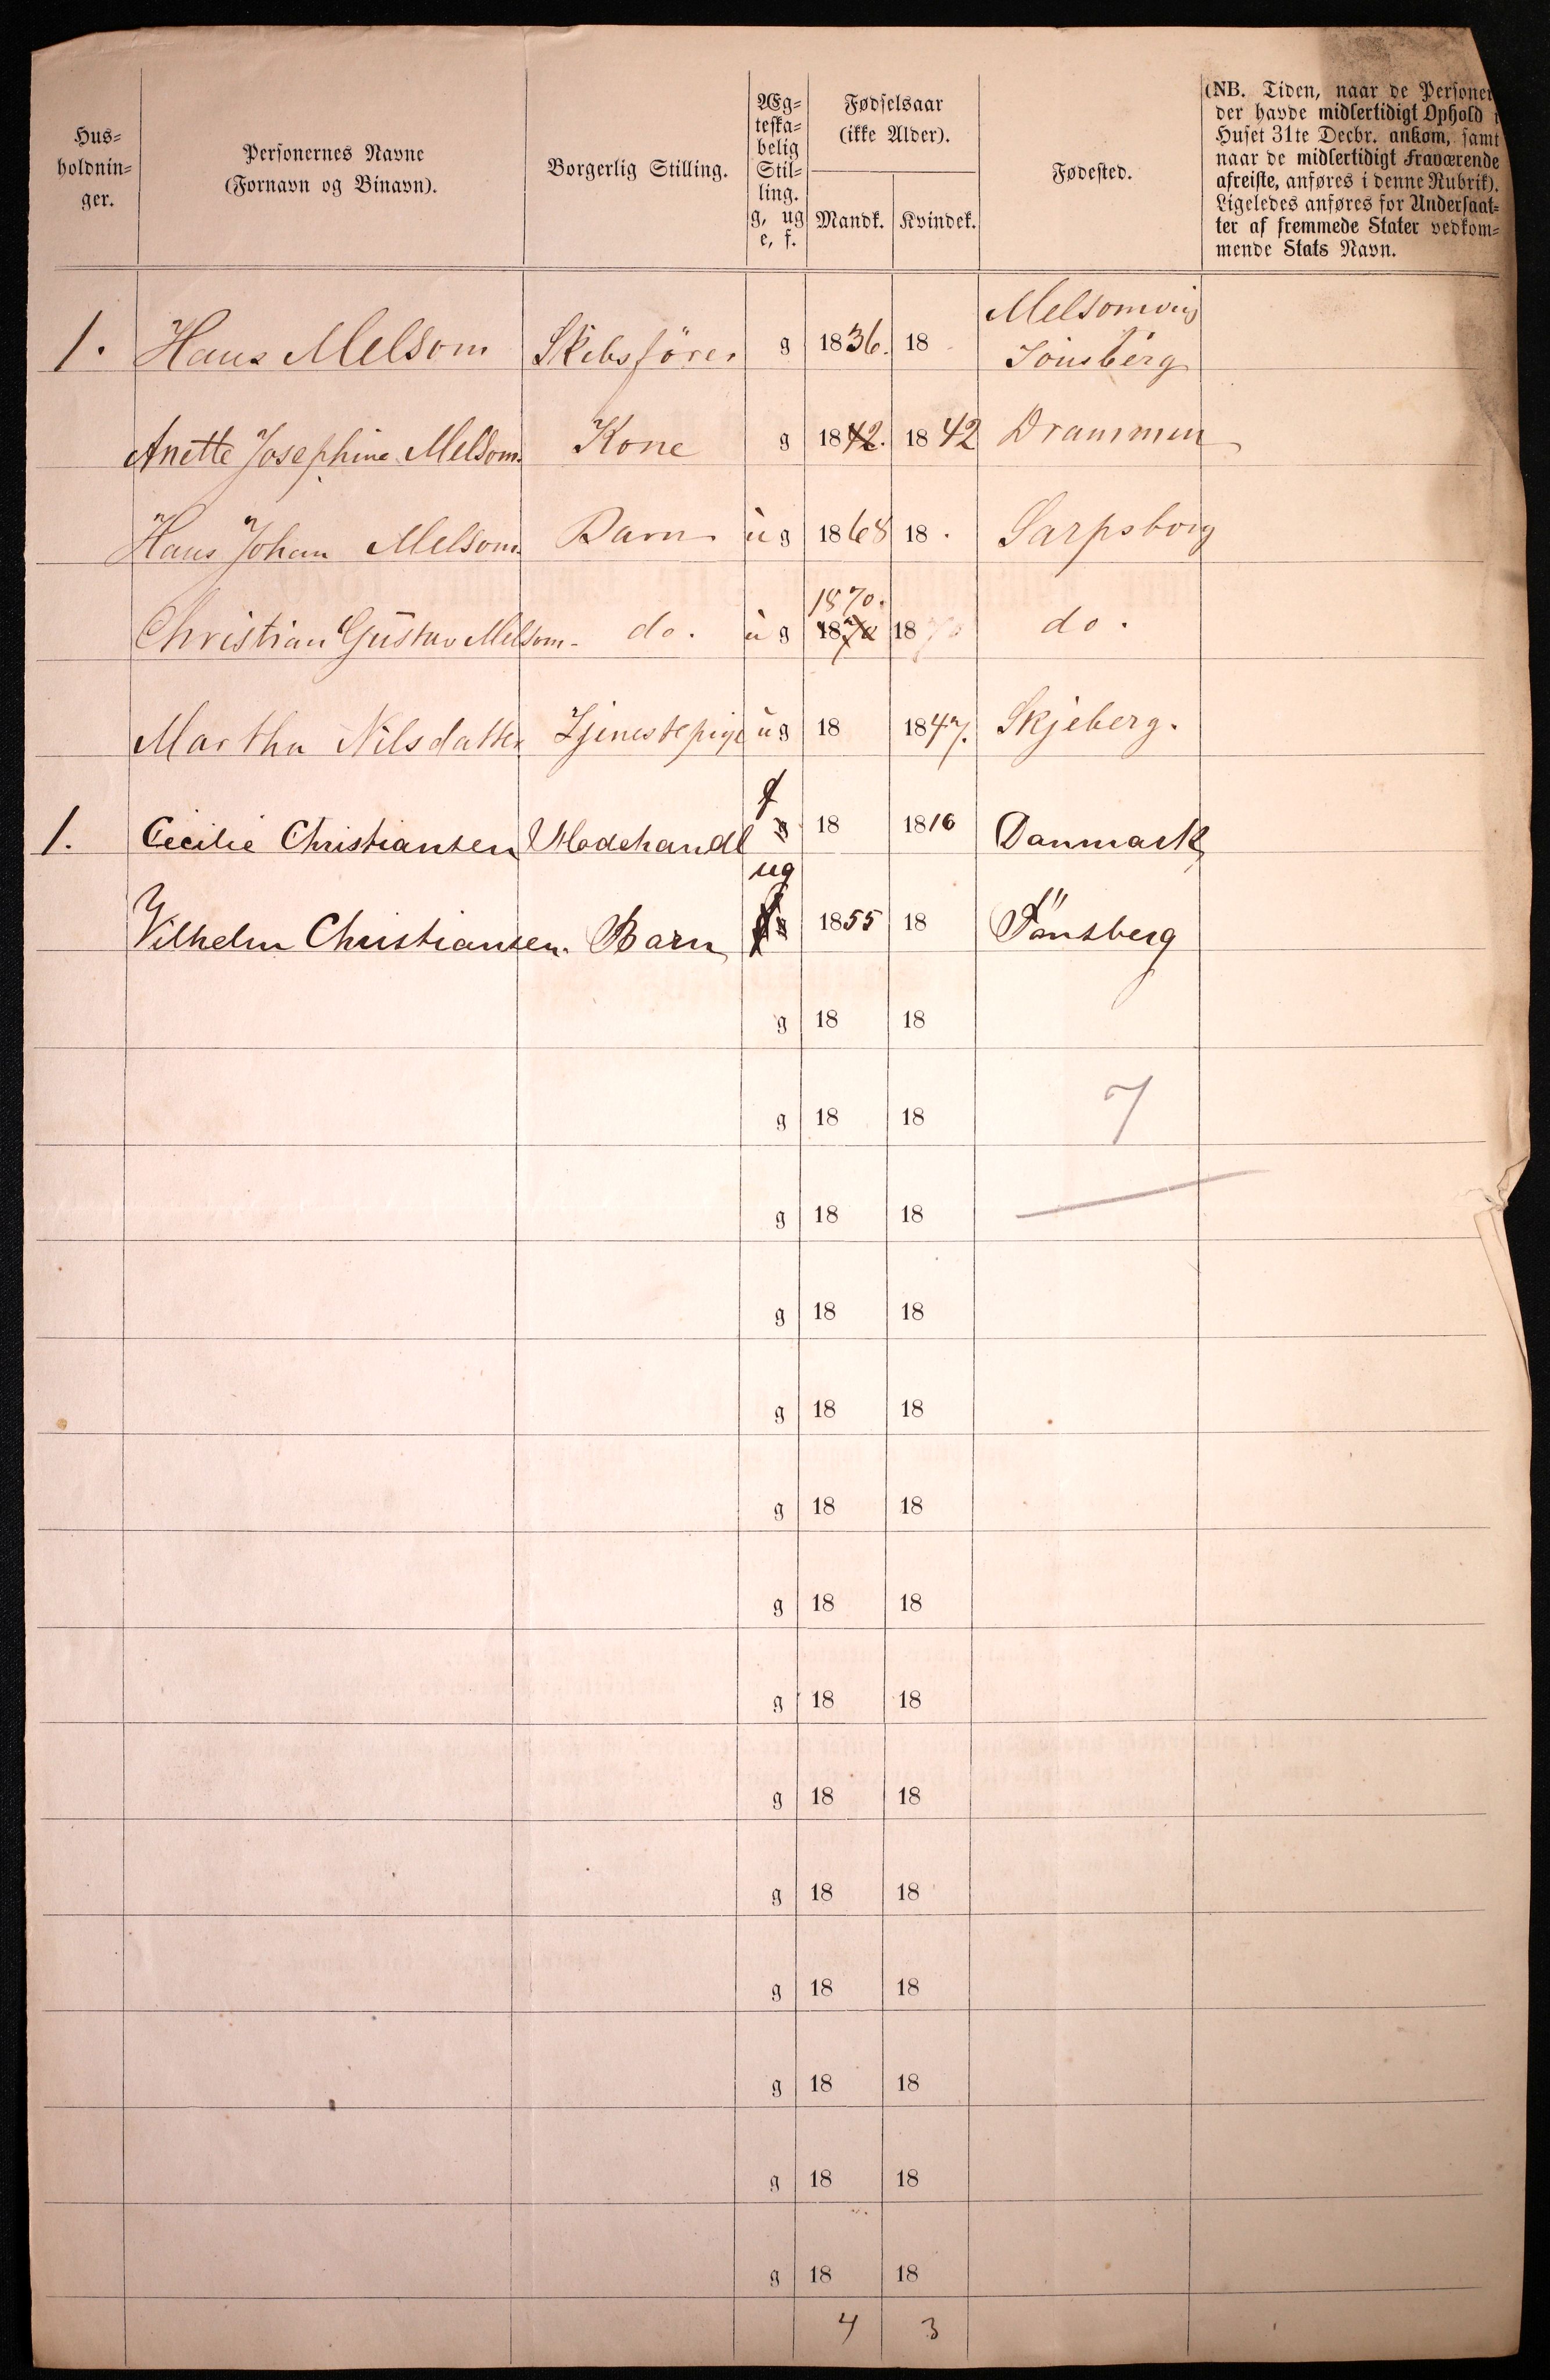 Hus-
holdnin-
ger.
Personernes Navne
(Fornavn og Binavn).
Borgerlig Stilling.
Æg-
teska-
belig
Stil-
ling.
g, ug
e, f.
Fødselsaar
(ikke Alder).
Mandk. Kvindek.
Fødested.
(NB. Tiden, naar de Personer
der havde midlertidigt Ophold i
Huset 31te Decbr. ankom, samt
naar de midlertidigt Fraværende
afreiste, anføres i denne Rubrik).
Ligeledes anføres for Undersaat-
ter af fremmede Stater vedkom-
mende Stats Navn.
1. Hans Melsom Skibsförer g 1836. 18 Melsomvig
Tönsberg
Anette Josephine Melsom. Kone g 1842. 1842 Drammen
Hans Johan Melsom Barn ug 1868 18 Sarpsborg
1870.
Christian Gustav Melsom. do. ug 1870 1870 do.
Martha Nilsdatter Tjenestepige ug 18 1847. Skjeberg.
f
1. Cecilie Christiansen Modehandl g 18 1816 Danmark
ug
Vilhelm Christiansen. Barn f g 1855 18 Tönsberg
g 18 18
g 18 18 7
g 18 18
g 18 18
g 18 18
g 18 18
g 18 18
g 18 18
g 18 18
g 18 18
g 18 18
g 18 18
g 18 18
g 18 18
4 3